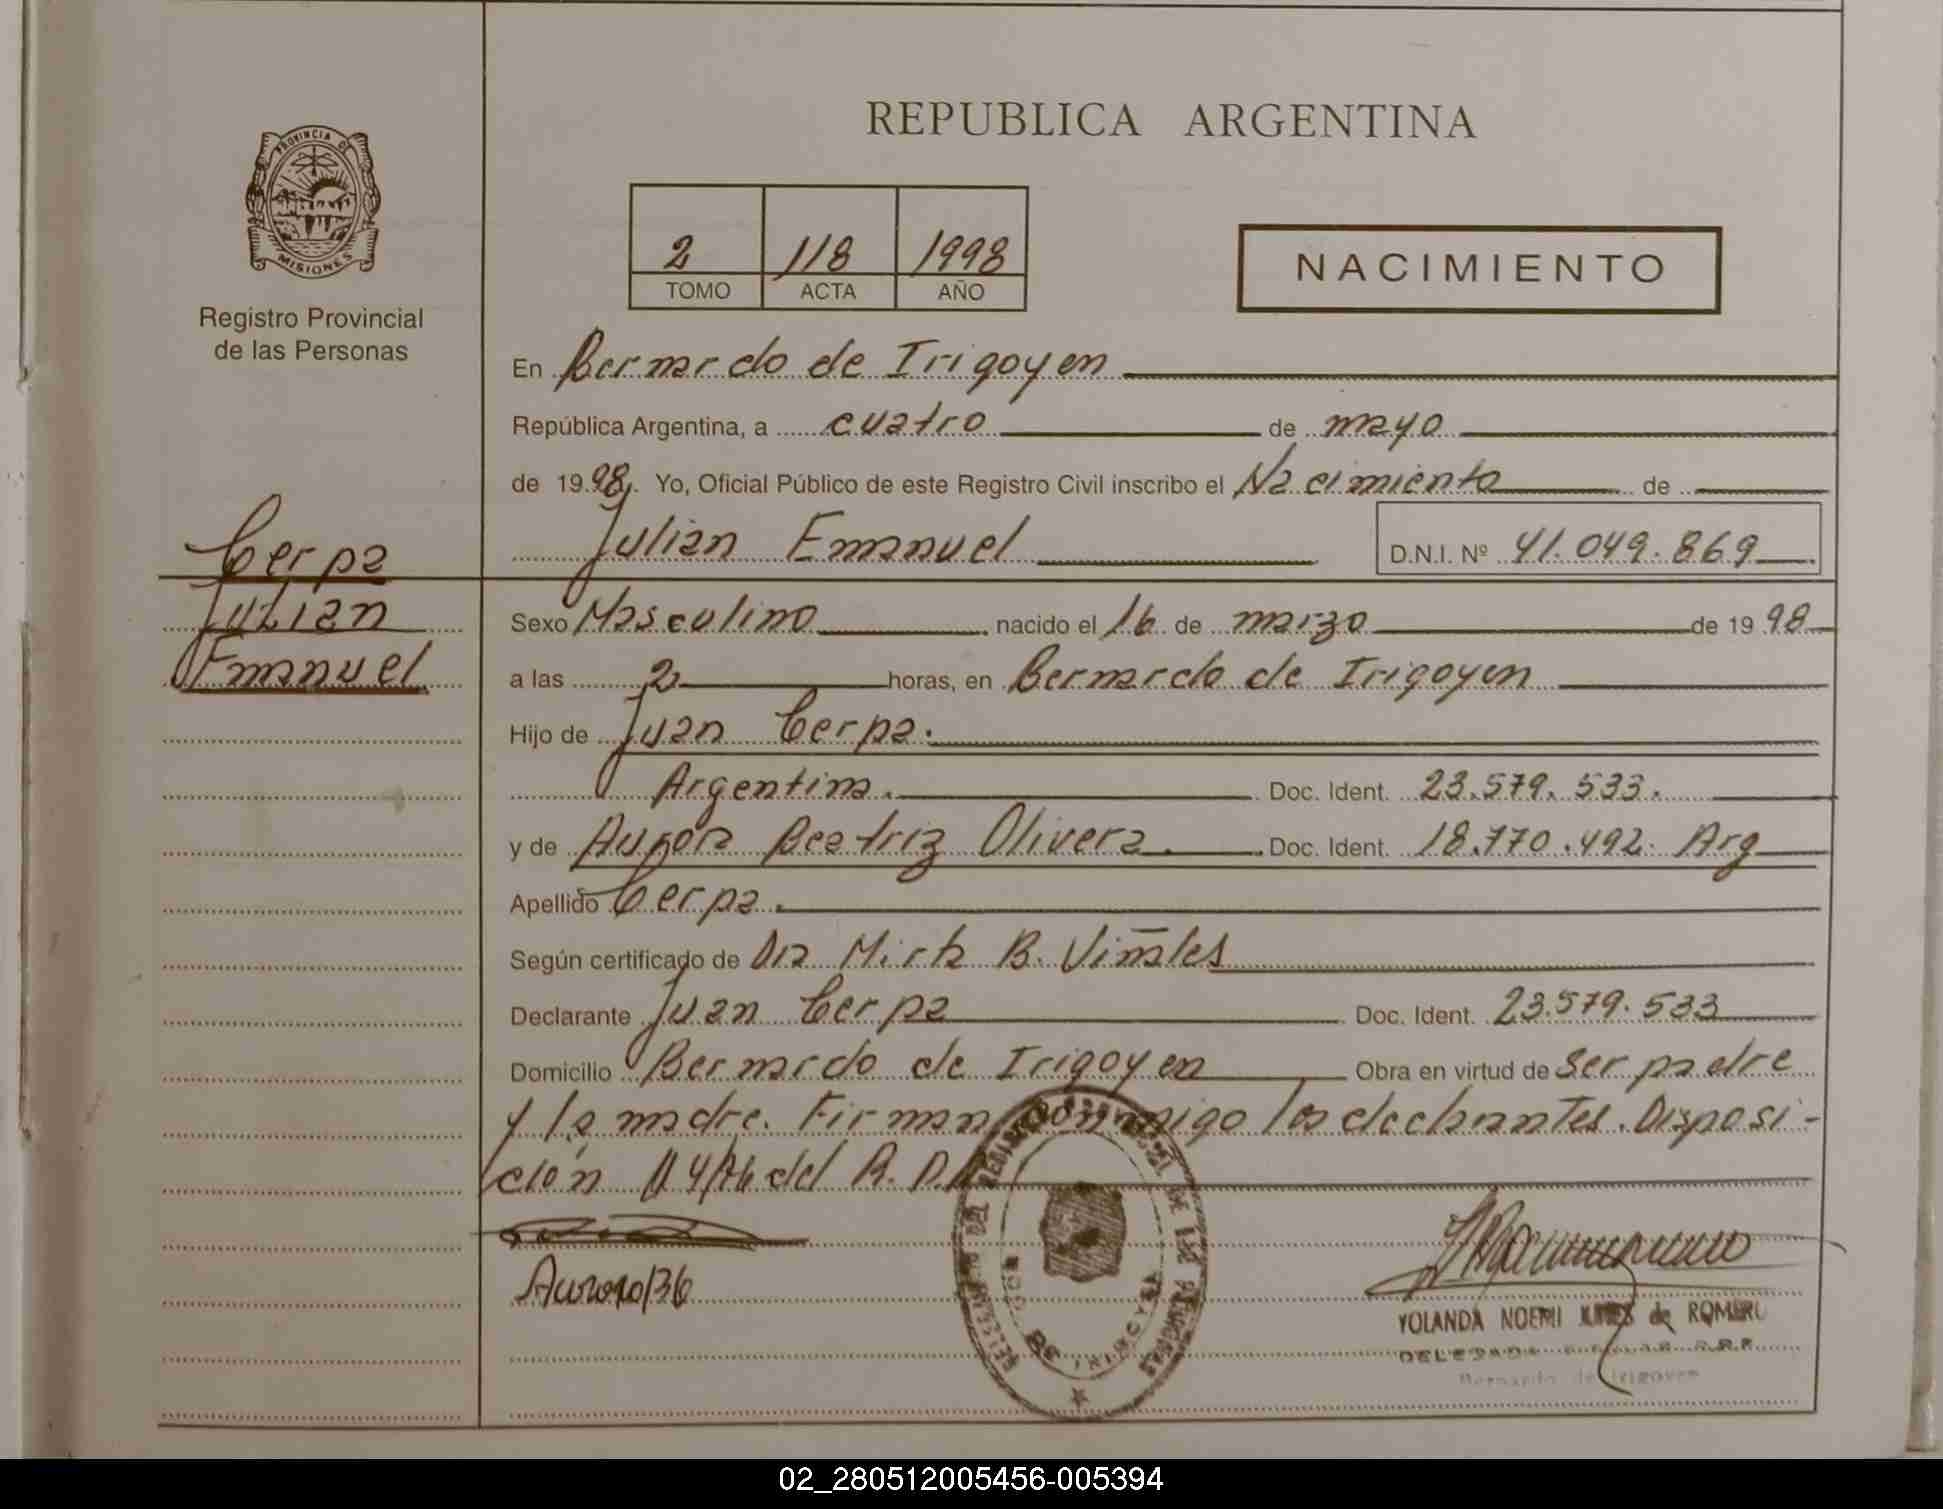 REPUBLICA ARGENTINA
PROVINCIA DE
MISIONES
Registro Provincial
de las Personas
2 118 1998
TOMO ACTA AÑO
NACIMIENTO
En Bernardo de Irigoyen
República Argentina, a cuatro de mayo
de 1998. Yo, Oficial Público de este Registro Civil inscribo el Nacimiento de
Julian Emanuel D.N.I. Nº 41.049.869
Cerpa
Julian
Emanuel
Sexo Masculino nacido el 16 de marzo de 1998
a las 2 horas, en Bernardo de Irigoyen
Hijo de Juan Cerpa.
Argentina. Doc. Ident. 23.579.533.
y de Aurora Beatriz Olivera. Doc. Ident. 18.770.492. Arg
Apellido Cerpa.
Según certificado de Dra Mirta B. Viñales
Declarante Juan Cerpa Doc. Ident. 23.579.533
Domicilio Bernardo de Irigoyen Obra en virtud de ser padre
y la madre. Firman conmigo los declarantes. Disposi-
ción del R. P.
YOLANDA NOEMI de ROMERO
DELEGADA R.P.P.
Bernardo de Irigoyen
02_280512005456-005394